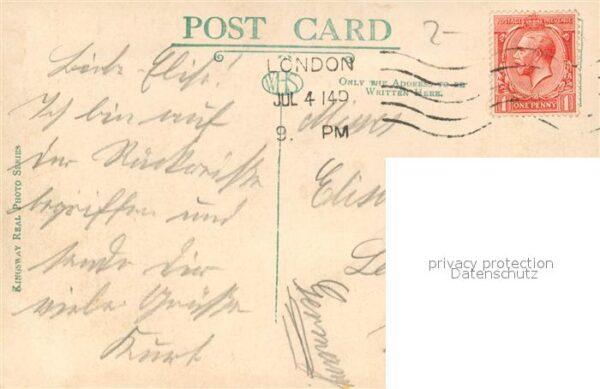 POST CARD
2-
LONDON
JUL 4 14
9. PM
WHS
ONLY THE ADDRESS TO BE
WRITTEN HERE.
POSTAGE REVENUE
ONE PENNY
1
KINGSWAY REAL PHOTO SERIES
Liebe Elise!
Ich bin auf
der Rückreise
begriffen und
sende Dir
viele Grüße
Kurt
Elis
Le
Germany
privacy protection
Datenschutz